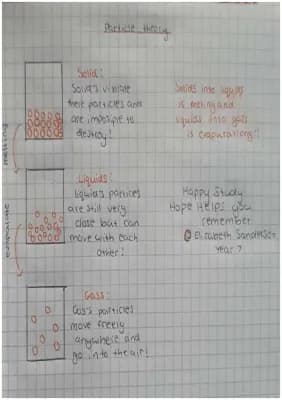 Particle theory
Solid:
Solid's vibrate
there particles and
are imposible to
destroy!
Solids into liquids
is melting and
liquids into gass
is evapurationg!!
melting
Liquids:
Liquids partices
are still very
close but can
move with each
other!
Happy Study
Hope Helps you
remember
Elizabeth
year 7
evapurate
Gass:
Gas's particles
move freely
anywhere and
go into the air!